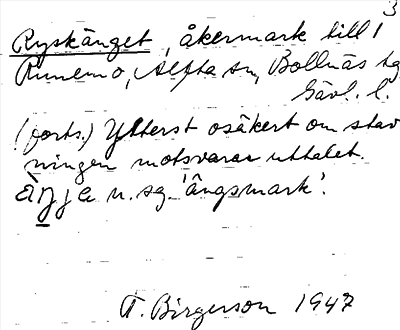 3
Ryskänget, åkermark till 1
Runemo, Alfta sn, Bollnäs tg
Gävl. l.
(forts.) Ytterst osäkert om stav
ningen motsvarar uttalet.
n. sg. 'ängsmark'.
T. Birgerson 1947